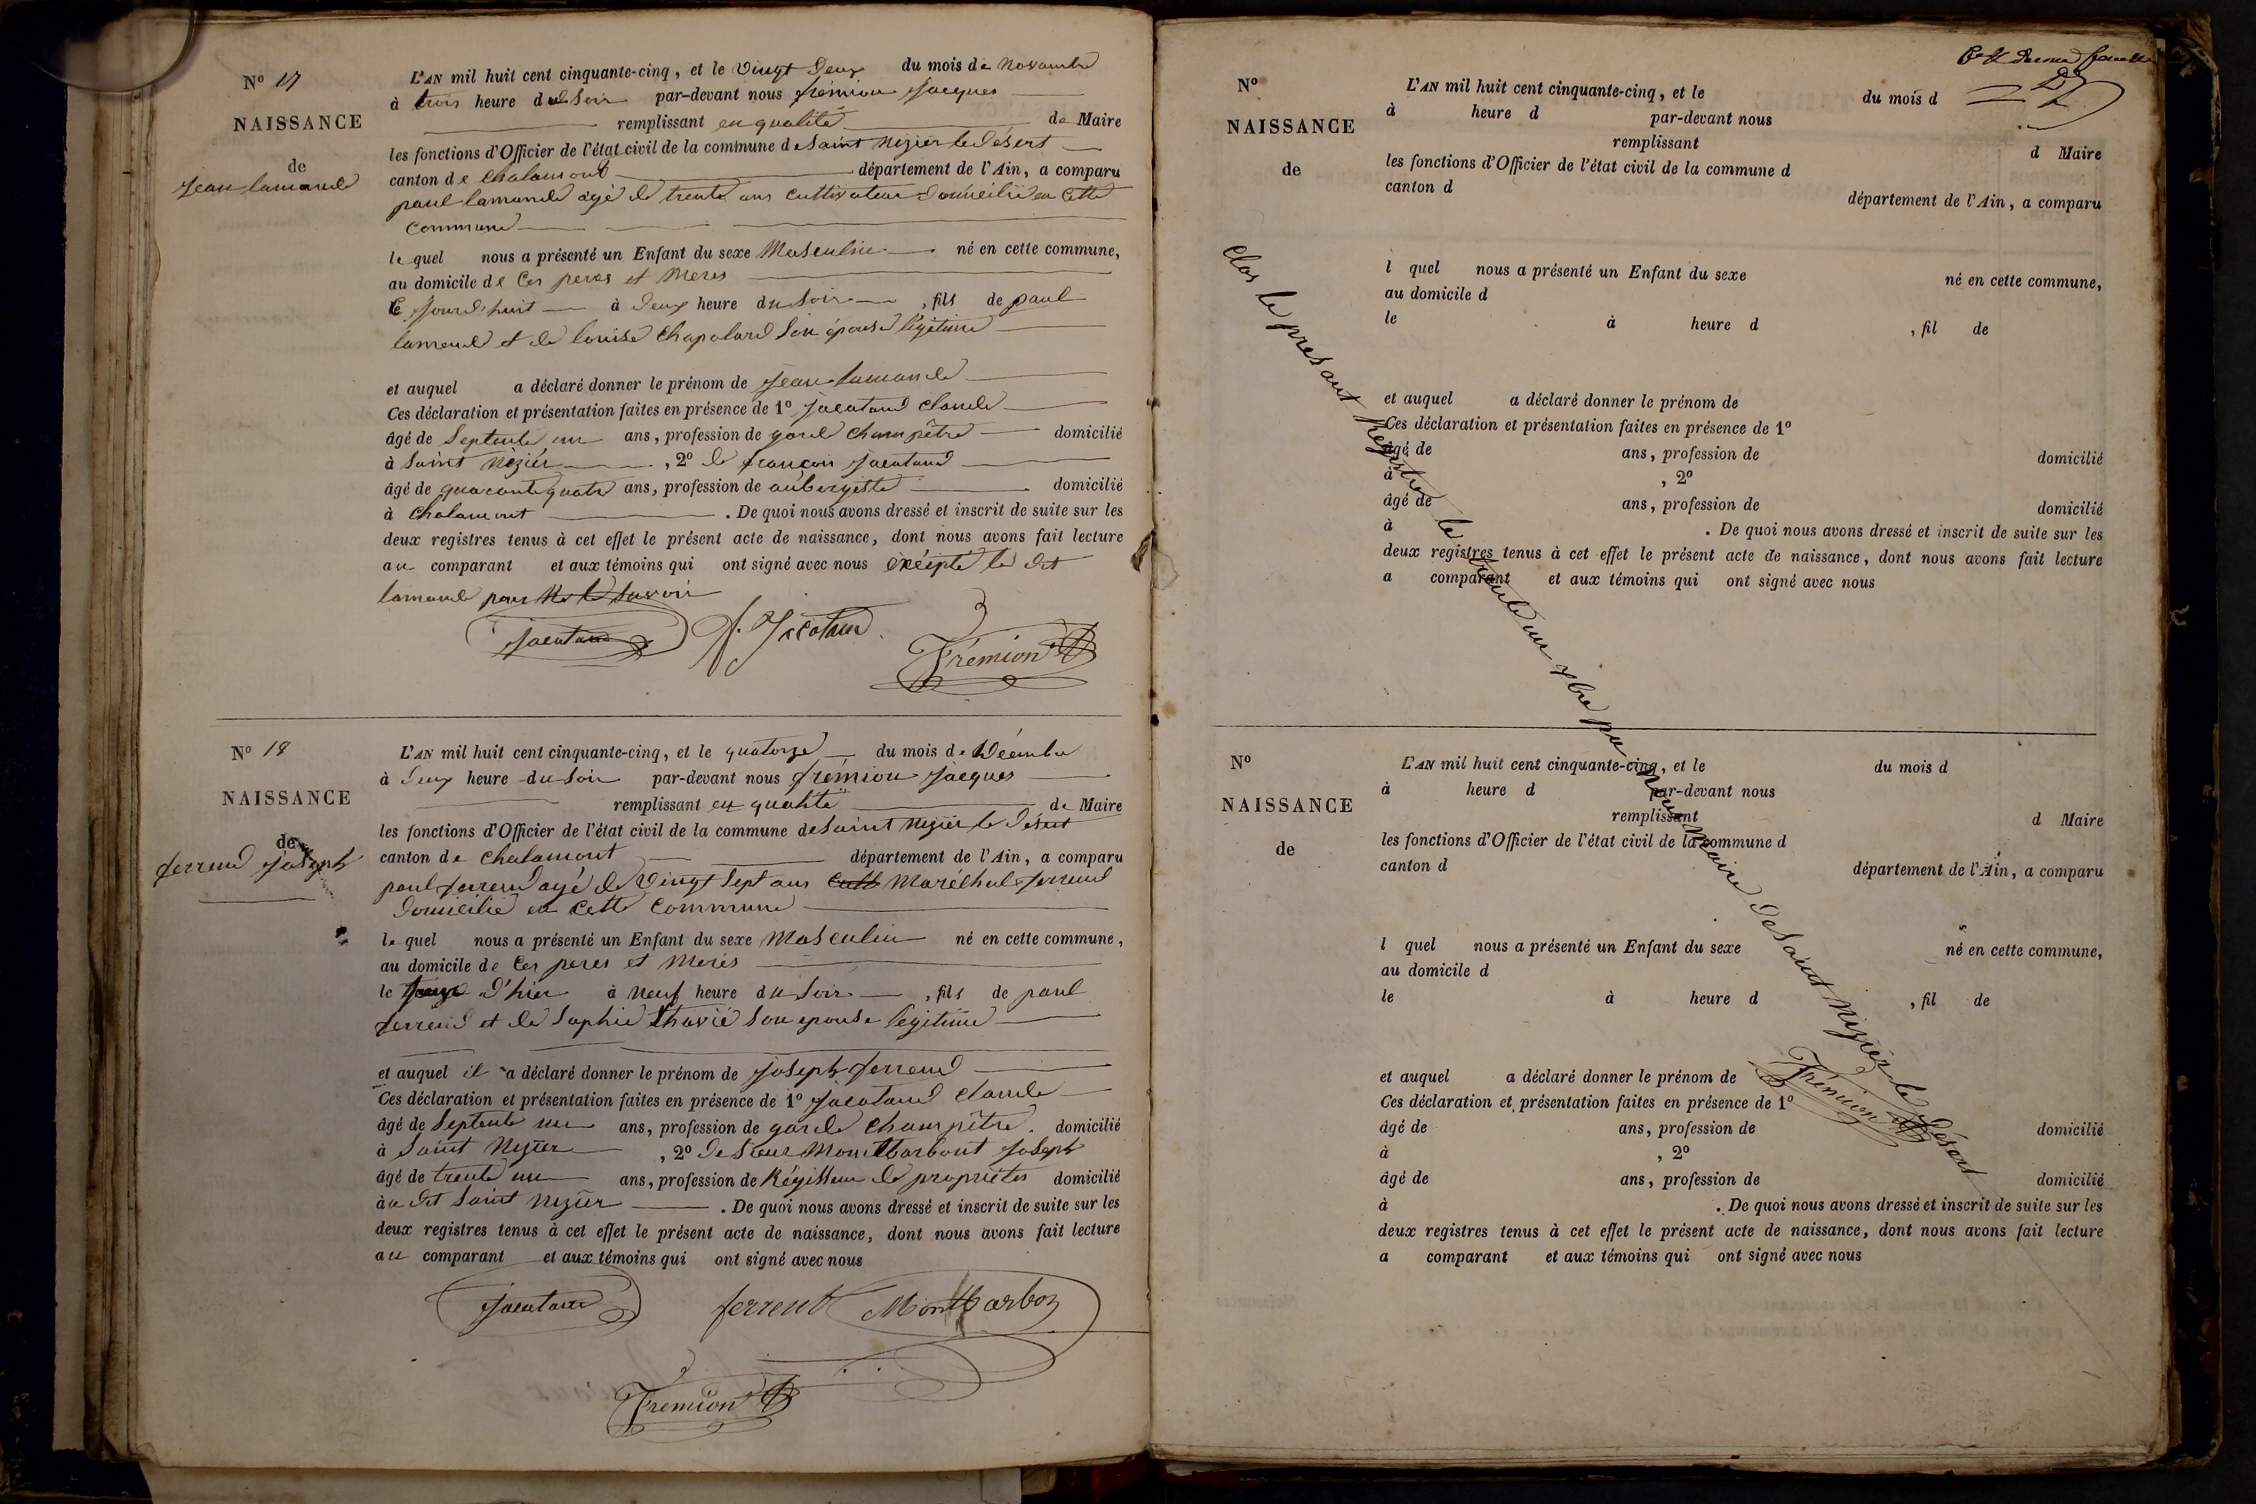 N° 17
NAISSANCE
de
Jean lamande
L'AN mil huit cent cinquante-cinq, et le vingt deux du mois de Novembre
à trois heure du Soir par-devant nous frémion Jacques
remplissant en qualité de Maire
les fonctions d'Officier de l'état civil de la commune de Saint Nizier le Désert
canton de Chalamont département de l'Ain, a comparu
paul lamande agé de trente ans cultivateur domicilié en Cette
Commune
le quel nous a présenté un Enfant du sexe Masculin né en cette commune,
au domicile de Ces peres et Meres
le Jourd'huit à deux heure du Soir, fils de paul
lamande et de louise Chapolard Son épouse légitime
et auquel a déclaré donner le prénom de Jean lamande
Ces déclaration et présentation faites en présence de 1° Jacatard Claude
âgé de Septente un ans, profession de garde Champêtre domicilié
à Saint Nizier, 2° de françois Jacatard
âgé de quarante quatre ans, profession de aubergiste domicilié
à Chalamont. De quoi nous avons dressé et inscrit de suite sur les
deux registres tenus à cet effet le présent acte de naissance, dont nous avons fait lecture
au comparant et aux témoins qui ont signé avec nous excépté le dit
lamande pour Ne le Savoir
Frémion
N° 18
NAISSANCE
de
ferrend Joseph
L'AN mil huit cent cinquante-cinq, et le quatorze du mois de Décembre
à deux heure du Soir par-devant nous frémion Jacques
remplissant en qualité de Maire
les fonctions d'Officier de l'état civil de la commune de Saint Nizier le Désert
canton de Chalamont département de l'Ain, a comparu
paul ferrend agé de Vingt Sept ans Cult Maréchal ferrend
domicilié en Cette Commune
le quel nous a présenté un Enfant du sexe Masculin né en cette commune,
au domicile de Ces peres et Meres
le d'hier à Neuf heure du Soir, fils de paul
ferrend et de Sophie Thavié Son epouse légitime
et auquel il a déclaré donner le prénom de Joseph ferrend
Ces déclaration et présentation faites en présence de 1° Jacatard Claude
âgé de Septente un ans, profession de garde Champêtre. domicilié
à Saint Nizier, 2° de Sieur Montbarbout Joseph
âgé de trente un ans, profession de Régisseur de propriétes domicilié
à u dit Saint Nizier. De quoi nous avons dressé et inscrit de suite sur les
deux registres tenus à cet effet le présent acte de naissance, dont nous avons fait lecture
au comparant et aux témoins qui ont signé avec nous
ferrend Montbarbon
Frémion
N°
NAISSANCE
de
L'AN mil huit cent cinquante-cinq, et le du mois d
à heure d par-devant nous
remplissant d Maire
les fonctions d'Officier de l'état civil de la commune d
canton d département de l'Ain, a comparu
l quel nous a présenté un Enfant du sexe né en cette commune,
au domicile d
le à heure d, fil de
et auquel a déclaré donner le prénom de
Ces déclaration et présentation faites en présence de 1°
âgé de ans, profession de domicilié
à, 2°
âgé de ans, profession de domicilié
à. De quoi nous avons dressé et inscrit de suite sur les
deux registres tenus à cet effet le présent acte de naissance, dont nous avons fait lecture
a comparant et aux témoins qui ont signé avec nous
Clos le présant Registre le trente un Xbre par Nous Maire de Saint Nizier le Désert
Frémion
N°
NAISSANCE
de
L'AN mil huit cent cinquante-cinq, et le du mois d
à heure d par-devant nous
remplissant d Maire
les fonctions d'Officier de l'état civil de la commune d
canton d département de l'Ain, a comparu
l quel nous a présenté un Enfant du sexe né en cette commune,
au domicile d
le à heure d, fil de
et auquel a déclaré donner le prénom de
Ces déclaration et présentation faites en présence de 1°
âgé de ans, profession de domicilié
à, 2°
âgé de ans, profession de domicilié
à. De quoi nous avons dressé et inscrit de suite sur les
deux registres tenus à cet effet le présent acte de naissance, dont nous avons fait lecture
a comparant et aux témoins qui ont signé avec nous